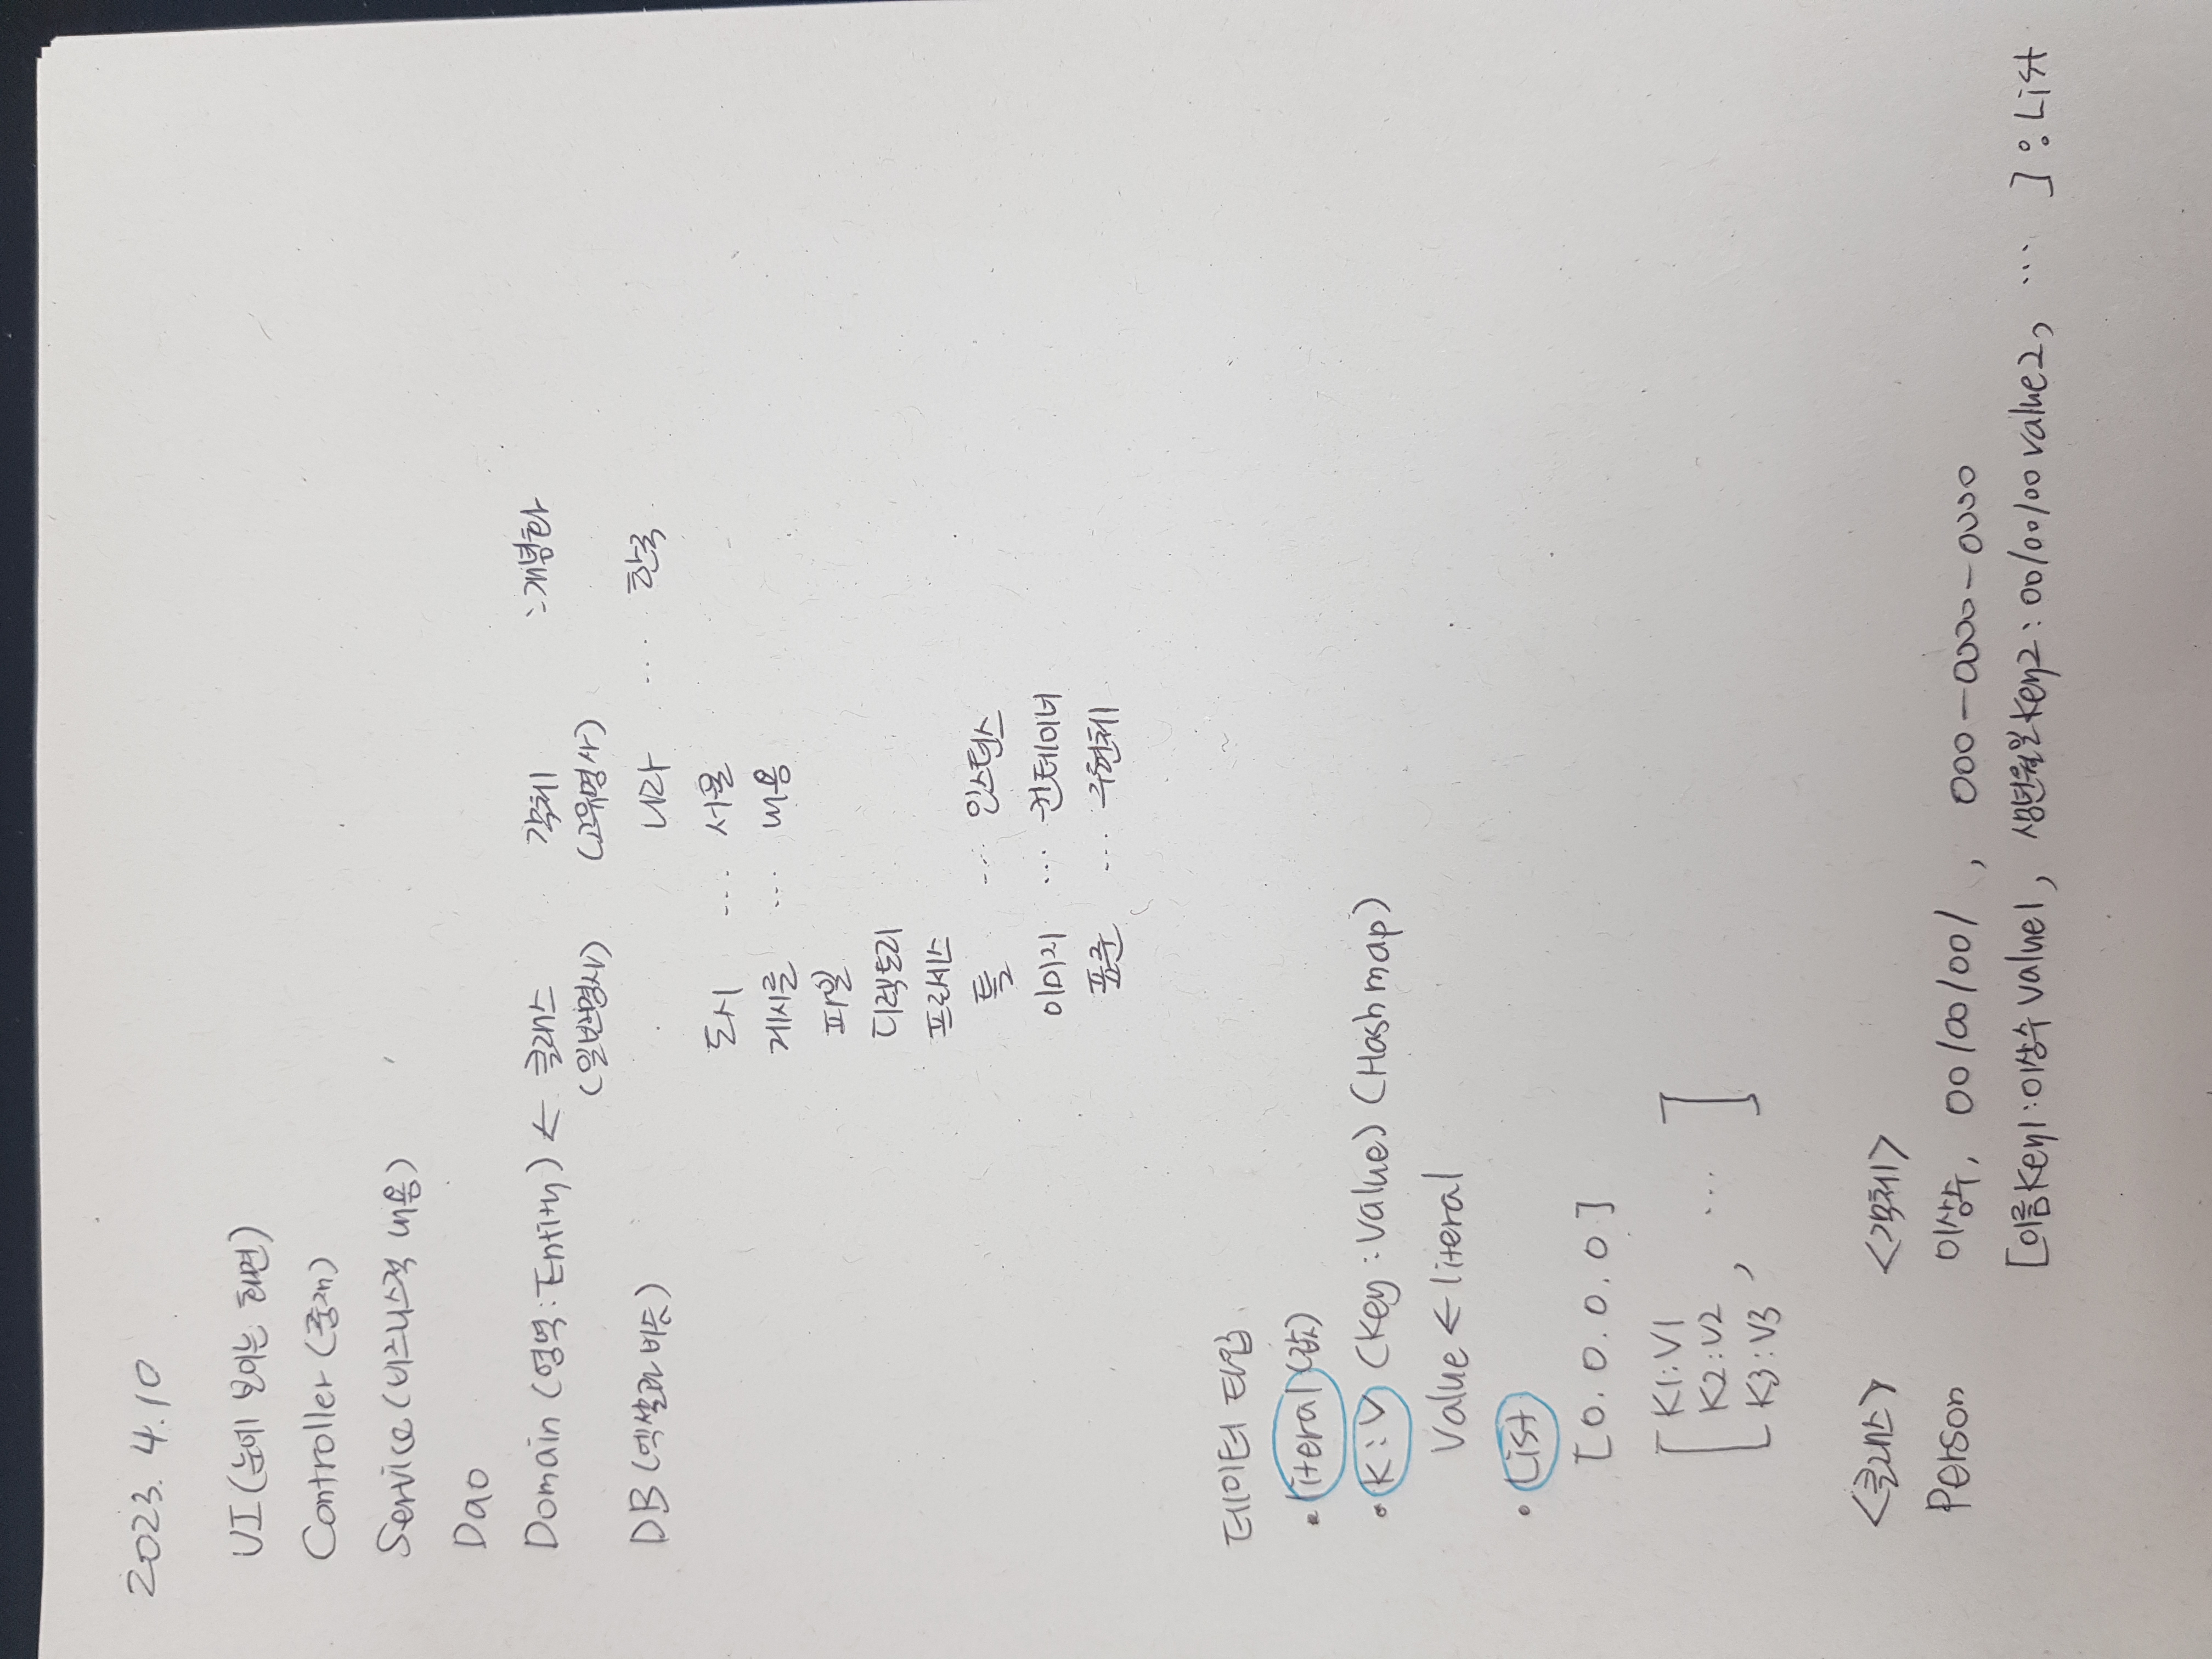 2023. 4. 10
UI (눈에 보이는 화면)
Controller (중재)
Service (비즈니스적 내용)
Dao
Domain (영역 : Entity) ← 클래스 객체 : 개념화
(일반명사) (고유명사)
DB (엑셀과 비슷) 나라 ... 한국
도시 ... 서울
게시글 ... 내용
파일
디렉토리
프로세스
틀 ... 인스턴스
이미지 ... 컨테이너
표준 ... 구현체
데이터 타입.
• literal (값)
• K : V (Key : Value) (Hashmap)
Value ← literal
• List
[0. 0. 0. 0]
[K1:V1
K2:V2
K3:V3, ... ]
<클래스> <객체>
Person 이상수, 00/00/00/, 000-0000-0000
[이름Key1:이상수 value1, 생년월일Key2 : 00/00/00 value2, ... ] : List